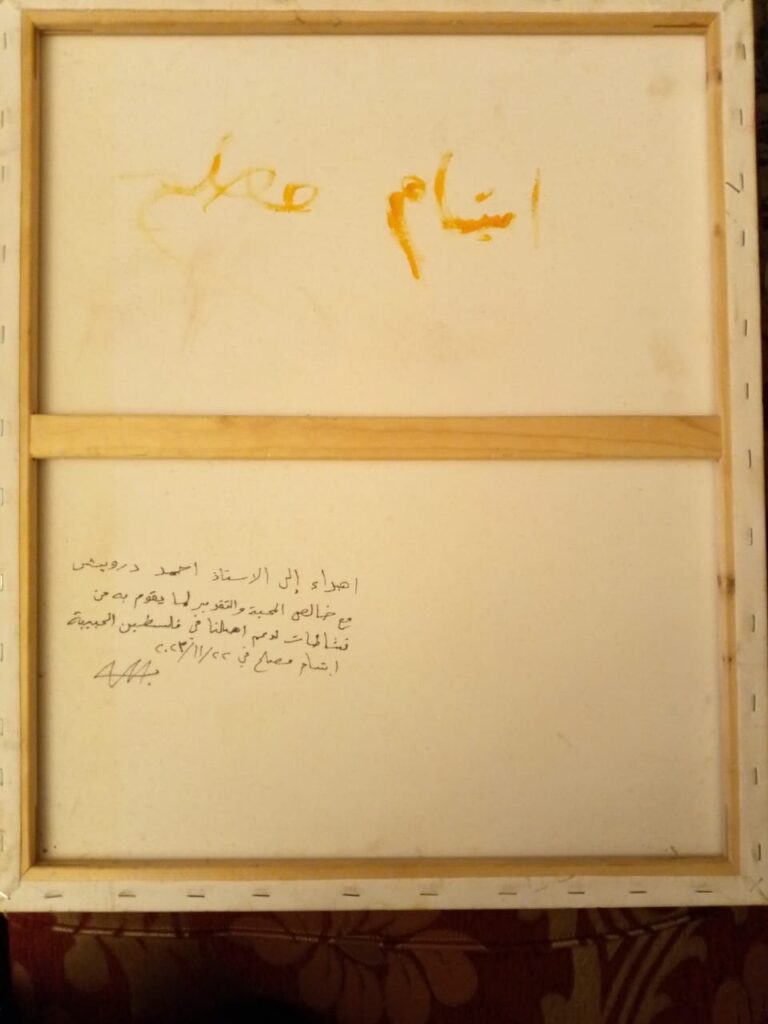 ابتسام مصلح
اهداء إلى الاستاذ احمد درويش
مع خالص المحبة والتقدير لما يقوم به من
نشاطات لدعم اهلنا في فلسطين الحبيبة
ابتسام مصلح في ٢٠٢٣/١١/٢٢